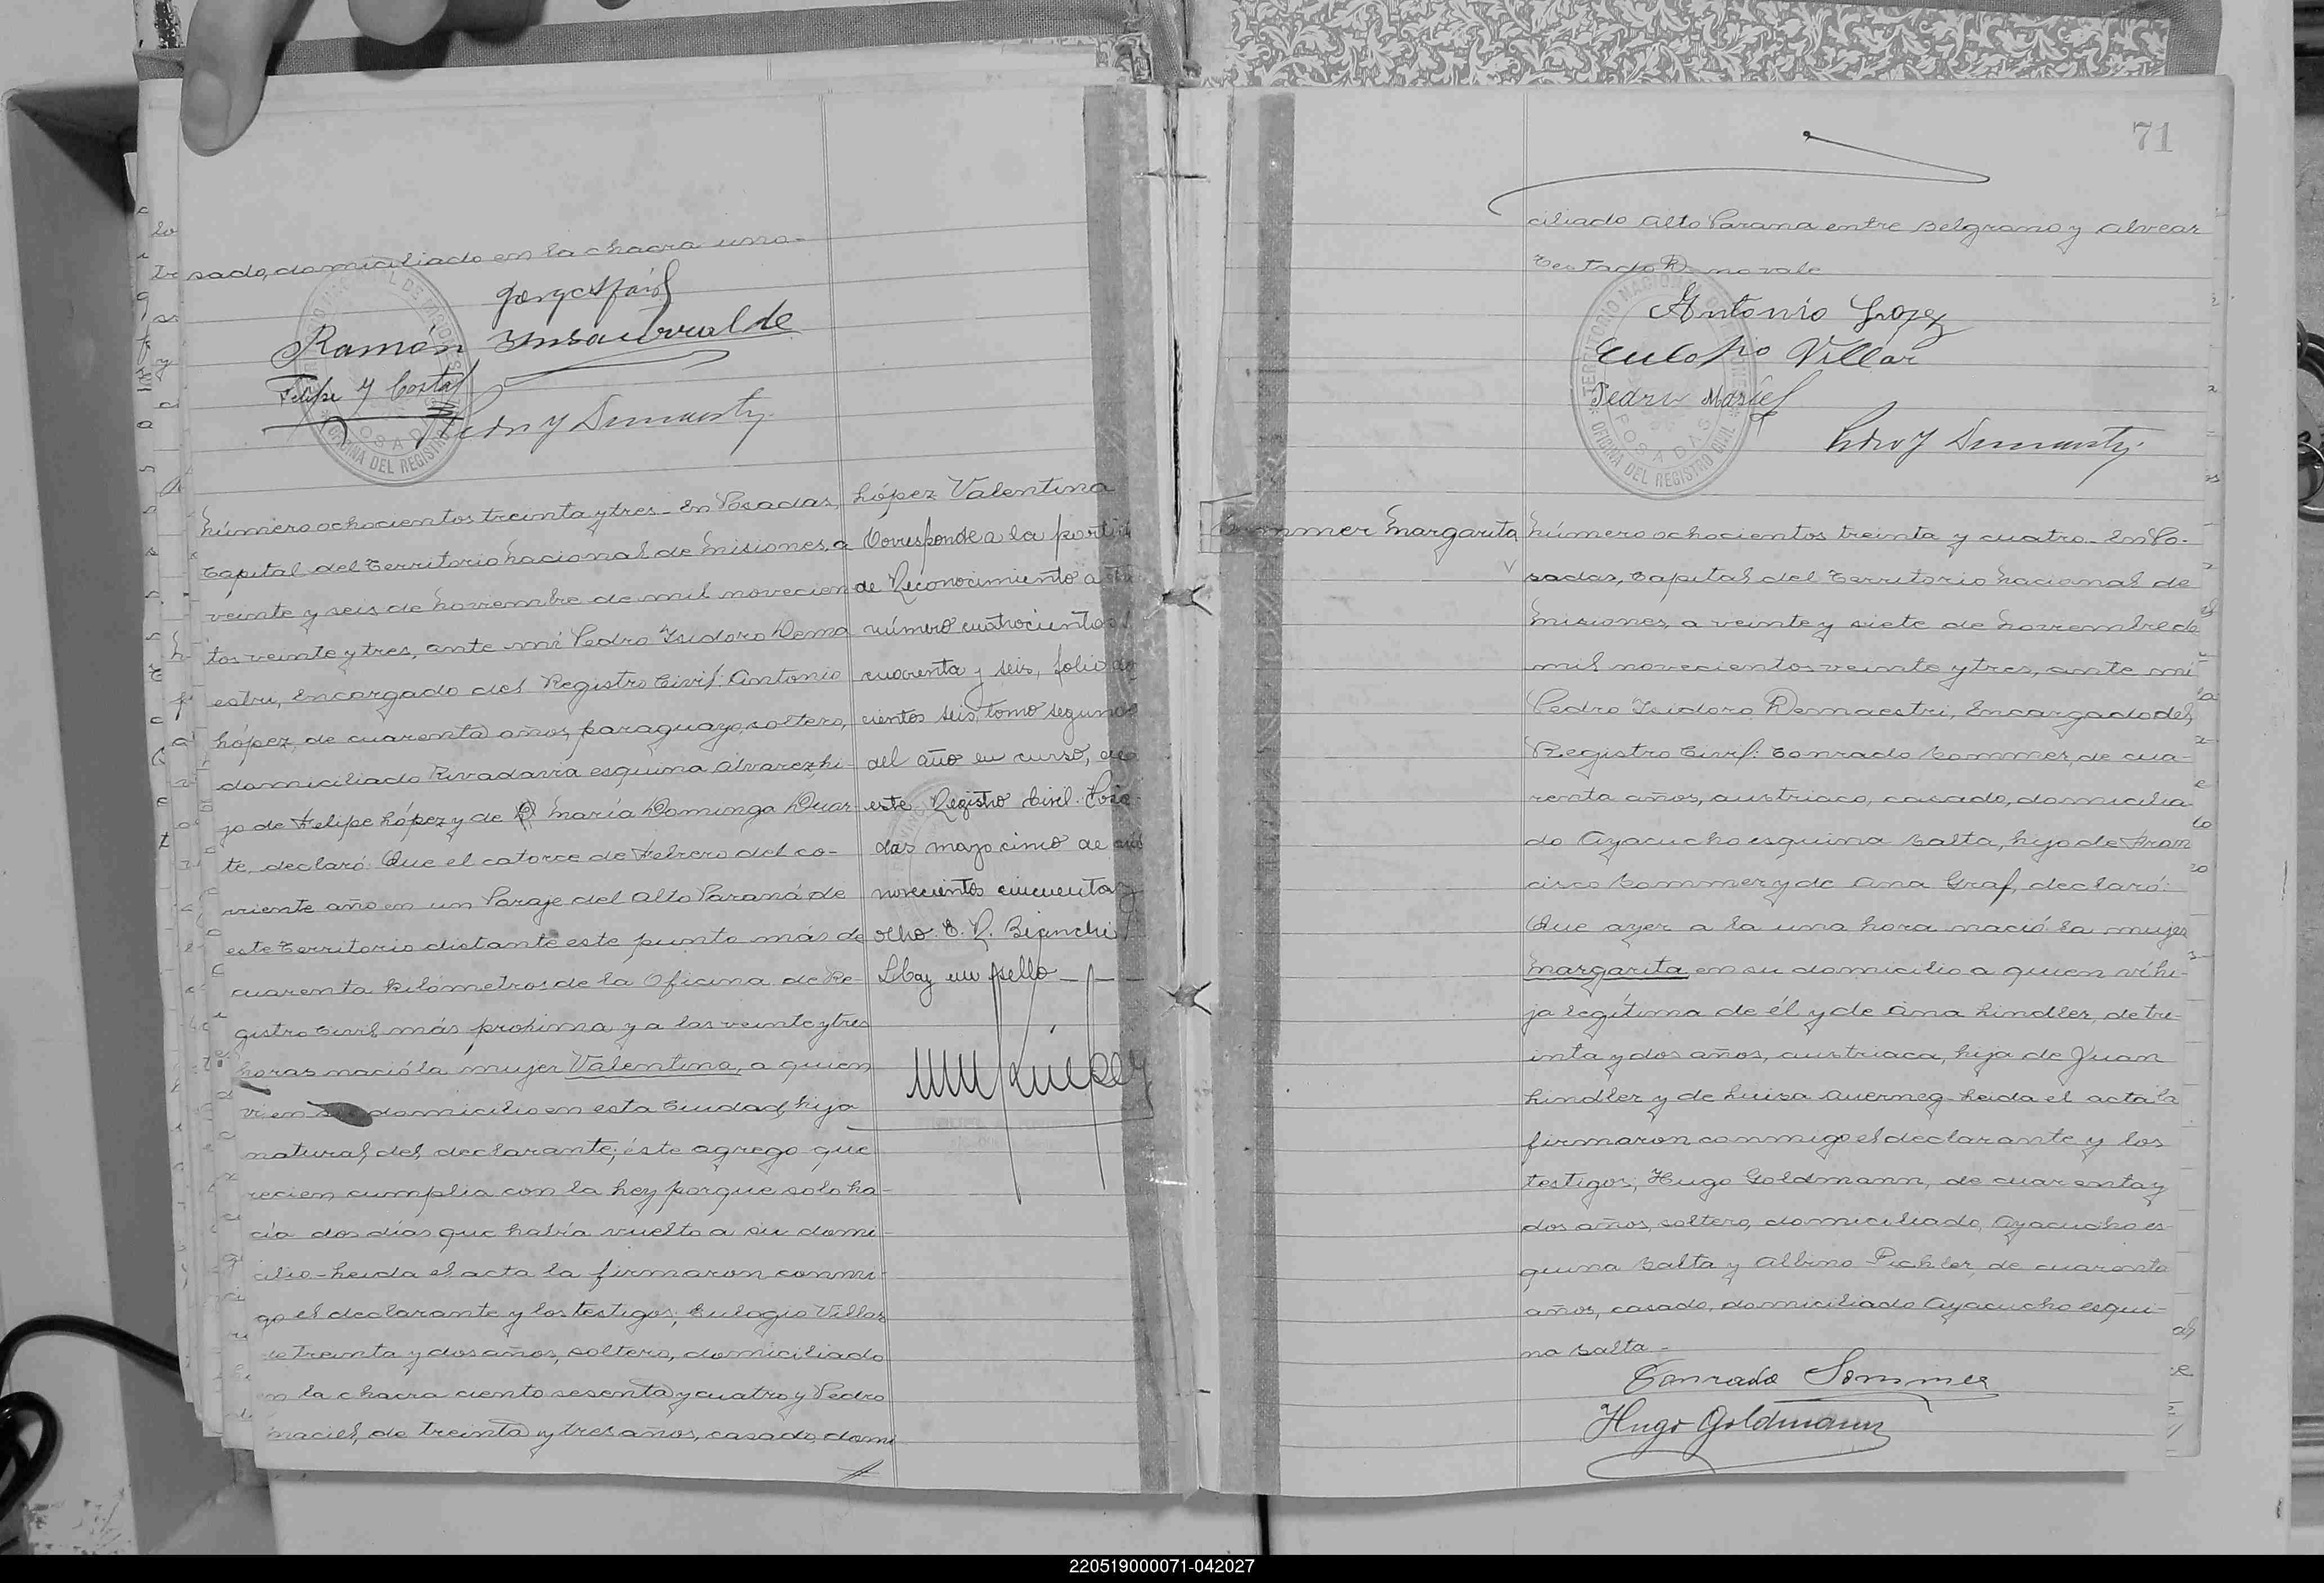 sado, domiciliado en la chacra uno-
Ramón Insaurralde
Felipe Y Costa
número ochocientos treinta y tres - En Posadas,
Capital del Territorio Nacional de Misiones, a
veinte y seis de Noviembre de mil novecien
tos veinte y tres, ante mí Pedro Isidoro Dema
estri, Encargado del Registro Civil: Antonio
López, de cuarenta años, paraguayo, soltero,
domiciliado Rivadavia esquina Alvarez, hi-
jo de Felipe López y de María Dominga Duar-
te, declaró: Que el catorce de Febrero del co-
rriente año en un Paraje del Alto Paraná de
este Territorio distante este punto más de
cuarenta kilómetros de la Oficina de Re-
gistro Civil más próxima y a las veinte y tres
horas nació la mujer Valentina, a quien
vi en su domicilio en esta Ciudad, hija
natural del declarante; éste agrego que
recien cumplia con la Ley porque solo ha-
cía dos días que había vuelto a su domi-
cilio - Leida el acta la firmaron conmi-
go el declarante y los testigos; Eulogio Villar
de treinta y dos años, soltero, domiciliado
en la chacra ciento sesenta y cuatro y Pedro
Maciel, de treinta y tres años, casado, domi
López Valentina
Corresponde a la partida
de Reconocimiento acta
número cuatrocientos
cuarenta y seis, folio dos
cientos seis, tomo segundo
del año en curso, de
este Registro Civil. Posa-
das mayo cinco de mil
novecientos cincuenta y
ocho. E. R. Bianchi
Hay un sello
71
ciliado Alto Parana entre Belgrano y Alvear
Testado D no vale
Antonio Lopez
Eulojio Villar
Pedro Masiel
TERRITORIO NACIONAL DE MISIONES
POSADAS
OFICINA DEL REGISTRO CIVIL
Sommer Margarita
número ochocientos treinta y cuatro - En Po-
sadas, Capital del Territorio Nacional de
Misiones, a veinte y siete de Noviembre de
mil novecientos veinte y tres, ante mi
Pedro Isidoro Demaestri, Encargado del
Registro Civil: Conrado Sommer, de cua-
renta años, austriaco, casado, domicilia
do Ayacucho esquina Salta, hijo de Fran
cisco Sommer y de Ana Graf, declaró:
Que ayer a la una hora nació la mujer
Margarita en su domicilio a quien vi hi-
ja legítima de él y de Ana Lindler, de tre-
inta y dos años, austriaca, hija de Juan
Lindler y de Luisa Auerneg - Leida el acta la
firmaron conmigo el declarante y los
testigos; Hugo Goldmann, de cuarenta y
dos años, soltero, domiciliado Ayacucho es
quina Salta y Albino Pichler, de cuarenta
años, casado, domiciliado Ayacucho esqui-
na Salta -
Conrado Sommer
Hugo Goldmann
220519000071-042027